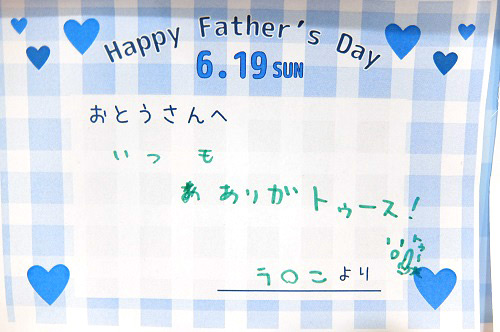 Happy Father's Day
6.19 SUN
おとうさんへ
いつも
ありがトゥース!
うOこより